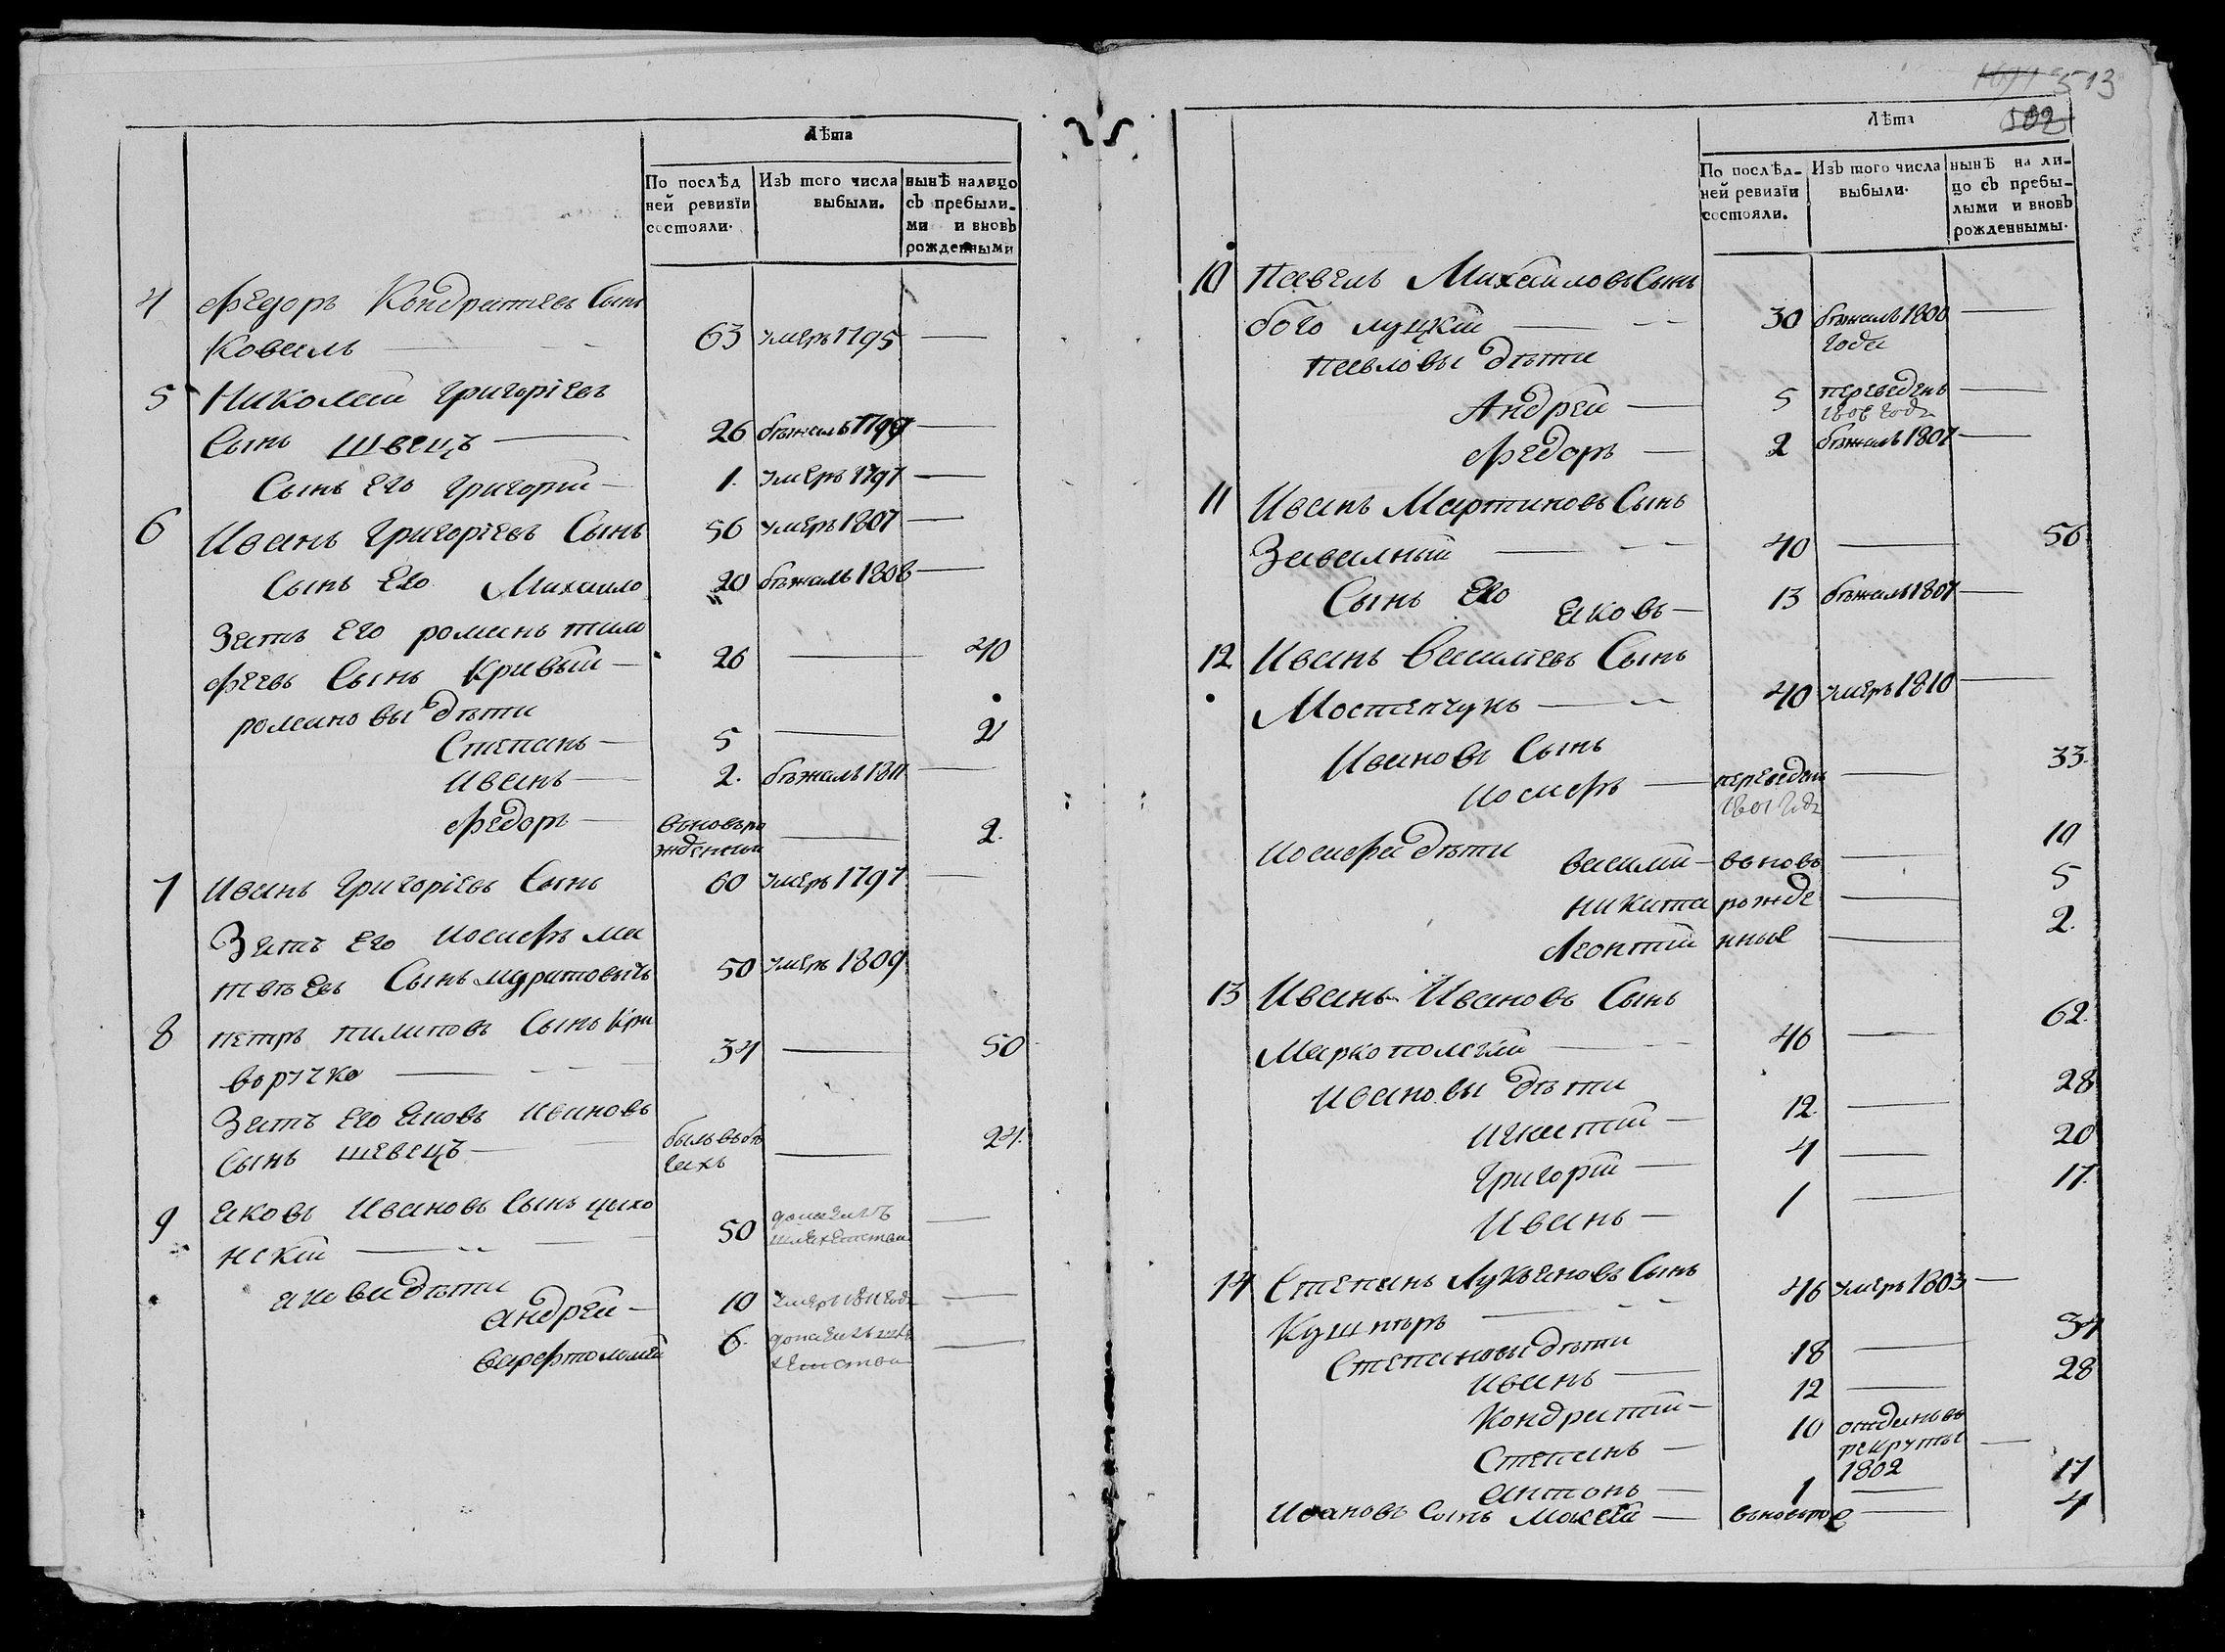 Лѣта
По послѣд Изъ того числа нынѣ налицо
ней ревизїи выбыли. съ пребыли-
состояли. ми и вновь
рожденными
4 Федоръ Кондратевъ Сынъ
Коваль 63 умеръ 1795
5 Николай Григоріевъ
Сынъ швецъ 26 бѣжалъ 1799
Сынъ Его Григорій 1. умеръ 1797
6 Иванъ Григоріевъ Сынъ 56 умеръ 1807
Сынъ Его Михаило 20 бѣжалъ 1808
Зять Его романъ тимо
феевъ Сынъ Кривый 26 40
романовы дѣти
Степанъ 5 21
иванъ 2. бѣжалъ 1811
федоръ вновьро 2.
жденный
7 Иванъ Григоріевъ Сынъ 60 умеръ 1797
Зять Его иосифъ ма
твѣевъ Сынъ 50 умеръ 1809
8 петръ пилиповъ Сынъ Кри
воручко 34 50
Зять Его яковъ ивановъ
Сынъ шевецъ былъ вбѣ 24.
гахъ
9 яковъ Ивановъ Сынъ цыхо
нскій 50
якова дѣти
андрей 10 умеръ 1811 года
варфтоломей 6.
513
502
Лѣта
По послѣд- Изъ того числа нынѣ на ли-
ней ревизїи выбыли. цо съ пребы-
состояли. лыми и вновь
рожденнымы.
10 Павелъ Михаиловъ Сынъ
бого луцкій 30 бѣжалъ 1800
года
павловы дѣти
Андрей 5 переведенъ
годa
федоръ 2 бѣжалъ 1807
11 Иванъ Мартиновъ Сынъ
Завалный 40 56.
Сынъ Его яковъ 13 бѣжалъ 1807
12 Иванъ василіевъ Сынъ
Мостепчукъ 40 умеръ 1810
Ивановъ Сынъ
иосифъ переведенъ 33.
1801 года
иосифа дѣти василій вновь 10
никита рожде 5
Леонтій нные 2.
13 Иванъ Ивановъ Сынъ
46 62.
ивановы дѣти
игнатій 12. 28
Григорій 4 20
Иванъ 1 17.
14 Степанъ Лукьяновъ Сынъ
Кушніръ 46 умеръ 1803
Степановы дѣти
иванъ 18 34
Кондратій 12 28
Степанъ 10 отданъ въ
рекруты
1802
антонъ 1 17
Ивановъ Сынъ Мокей вновьро 4